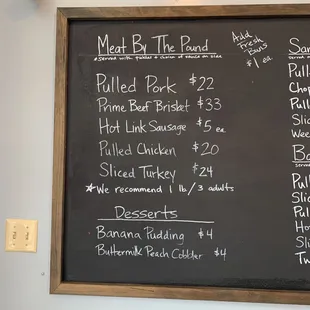 Meat By The Pound
Add
Fresh
Buns
$1 ea
Pulled Pork $22
Prime Beef Brisket $33
Hot Link Sausage $5 ea
Pulled Chicken $20
Sliced Turkey $24
We recommend 1 lb/3 adults
Desserts
Banana Pudding $4
Buttermilk Peach Cobbler $4
Sa
Pulle
Chop
Pulle
Slic
Wee
Pull
Slic
Pul
Ho
Sli
Tw